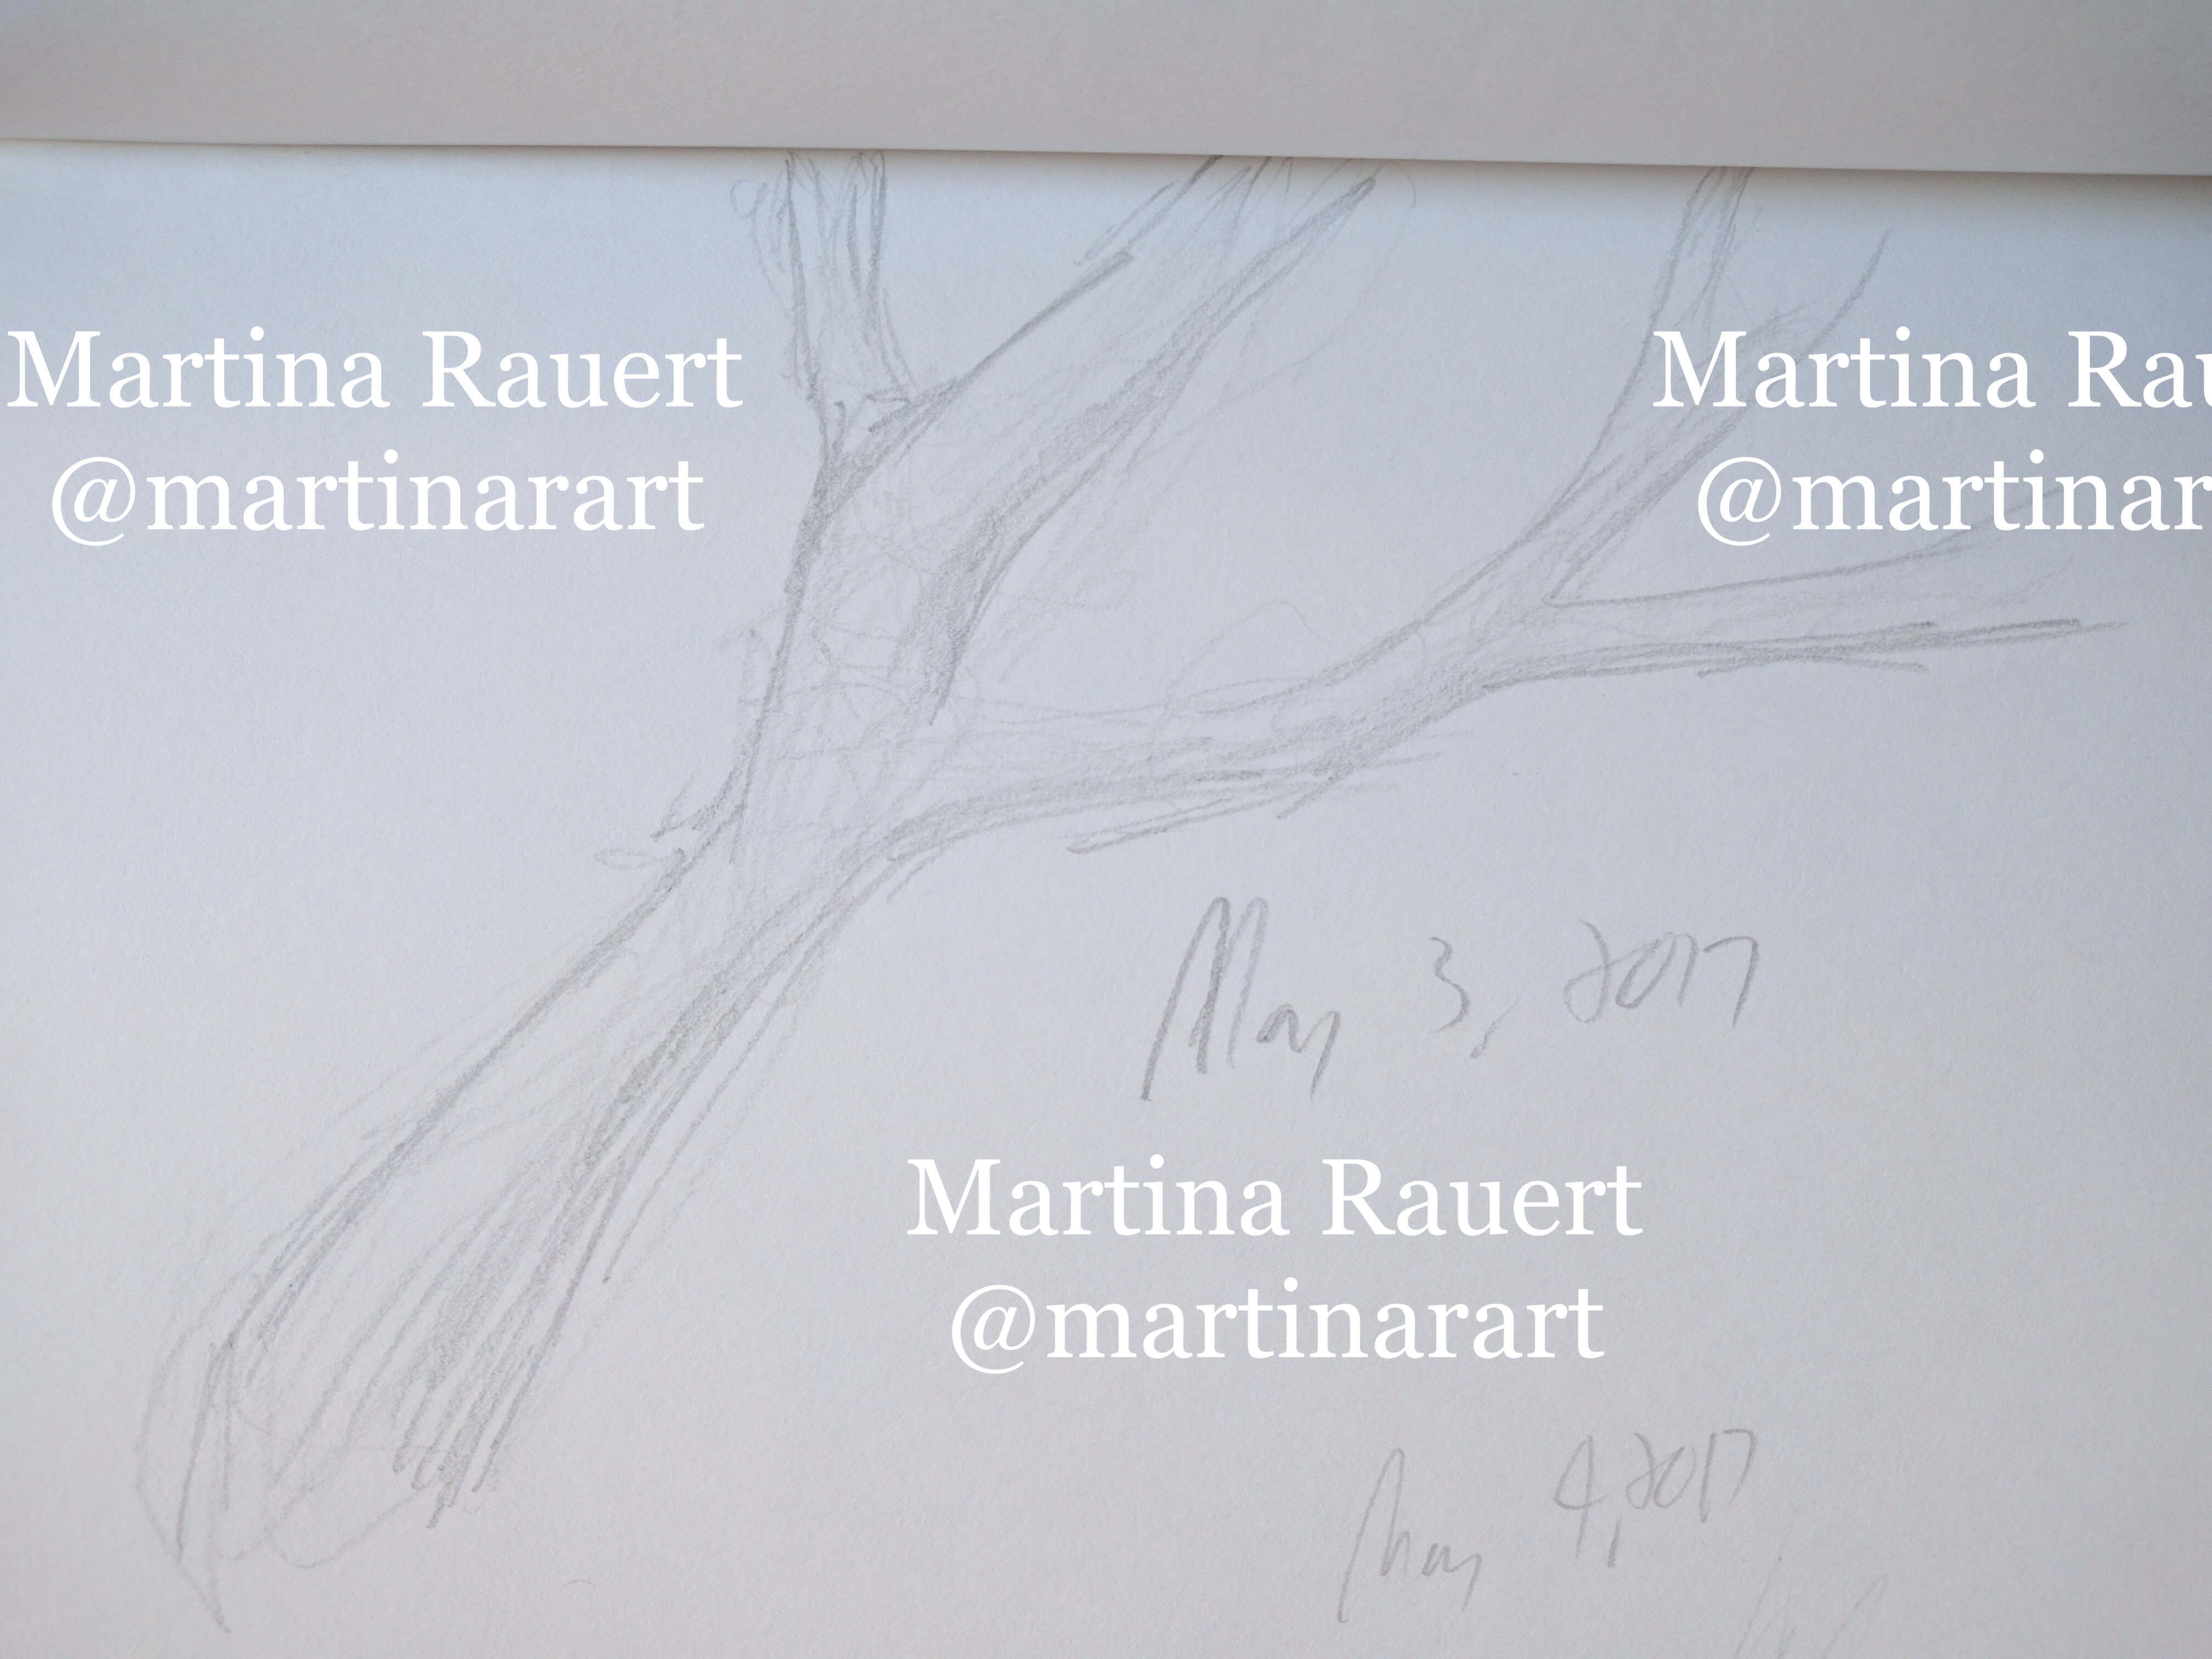 Martina Rauert
@martinarart
Martina Rau
@martinar
May 3, 2017
Martina Rauert
@martinarart
May 4, 2017